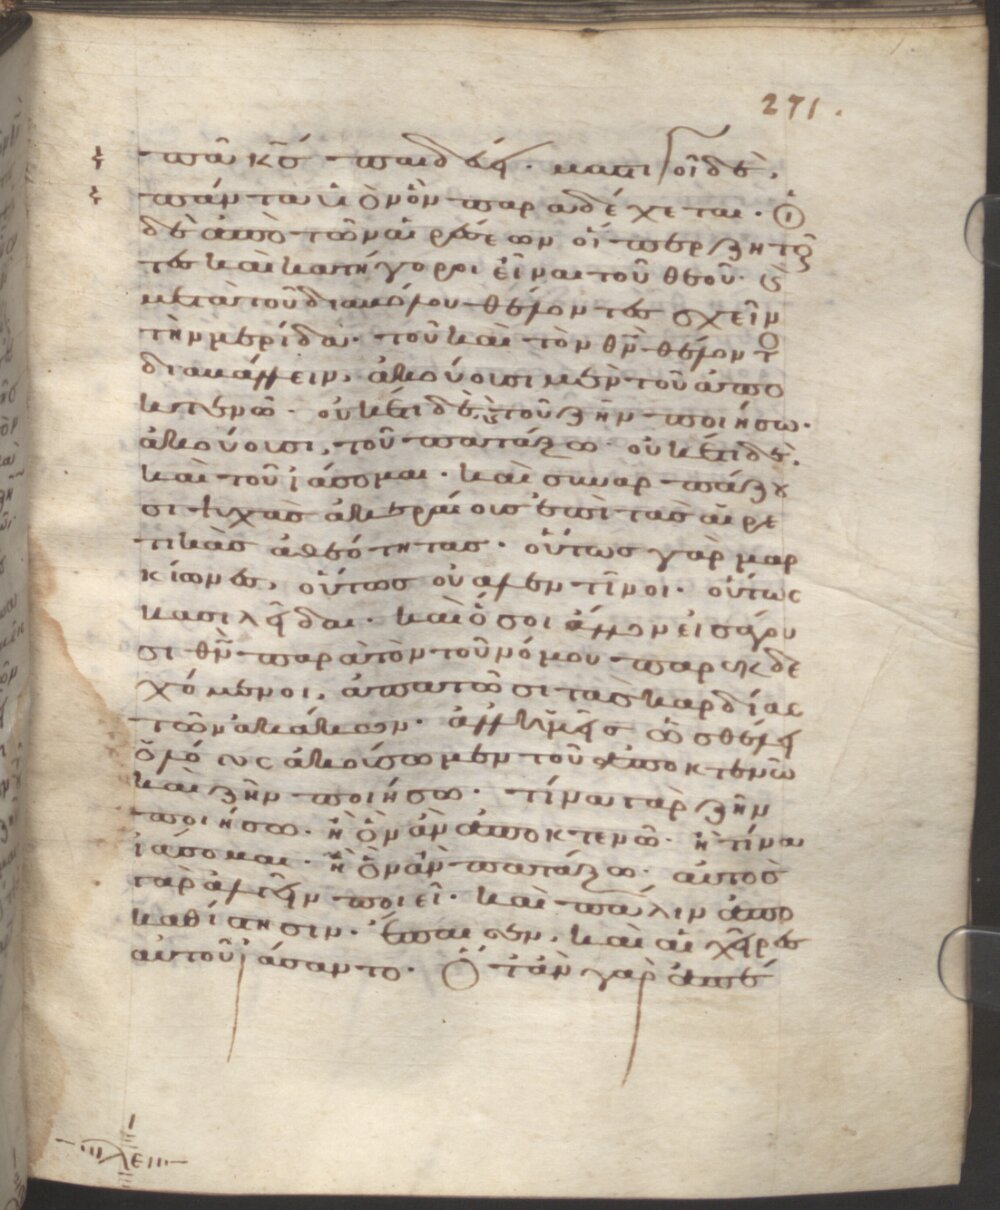 πᾶ κ̅ς̅ παιδεύει· μαστιγοῖ δὲ,
πάντα υἱὸν ὃν παραδέχεται· οἱ
δὲ ἀπὸ τῶν αἱρέσεων οἱ περιζητοῦ
τες καὶ κατήγοροι εἶναι τοῦ θεοῦ· ϗ
μετὰ τοῦ διαβόλου θέλοντες σχεῖν
τὴν μερίδα· τοῦ καὶ τὸν θ̅ν̅ θέλοντο
διαβάλλειν, ἀκούουσι μὲν τοῦ ἀπο
κτενῶ· οὐκέτι δὲ, ϗ τοῦ ζῆν ποιήσω·
ἀκούουσι, τοῦ πατάξω· οὐκέτι δὲ,
καὶ τοῦ ἰάσομαι· καὶ συναρπάζου
σι ψυχὰς ἀκεραίους ἐπὶ τὰς αἱρε
τικὰς ἀθεότητας· οὕτως γὰρ μαρ
κίωνες, οὕτως οὐαλεντῖνοι· οὕτως
βασιλεῖδαι· καὶ ὅσοι ἄλλον εἰσάγου
σι θ̅ν̅ παρὰ τὸν τοῦ νόμου παρεισδε
χόμενοι, ἀπατῶσι τὰς καρδίας
τῶν ἀκάκων· ἀλλ' ἡμεῖς ὡς θέλει
ὁ λόγος ἀκούσωμεν τοῦ ἀποκτενῶ
καὶ ζῆν ποιήσω· τίνα γὰρ ζῆν
ποιήσω· ἢ ὃν ἂν ἀποκτενῶ· ἢ τίνα
ἰάσομαι· ἢ ὃν ἂν πατάξω· αὐτὸς
γὰρ ἀλγεῖν ποιεῖ· καὶ πάλιν ἀπο
καθίστησιν· ἔπαισεν, καὶ αἱ χεῖρες
αὐτοῦ ἰάσαντο· Ὅταν γὰρ ἀπει